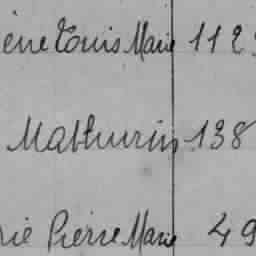 ène Louis Marie 112
Mathurin 138
rie Pierre Marie 49